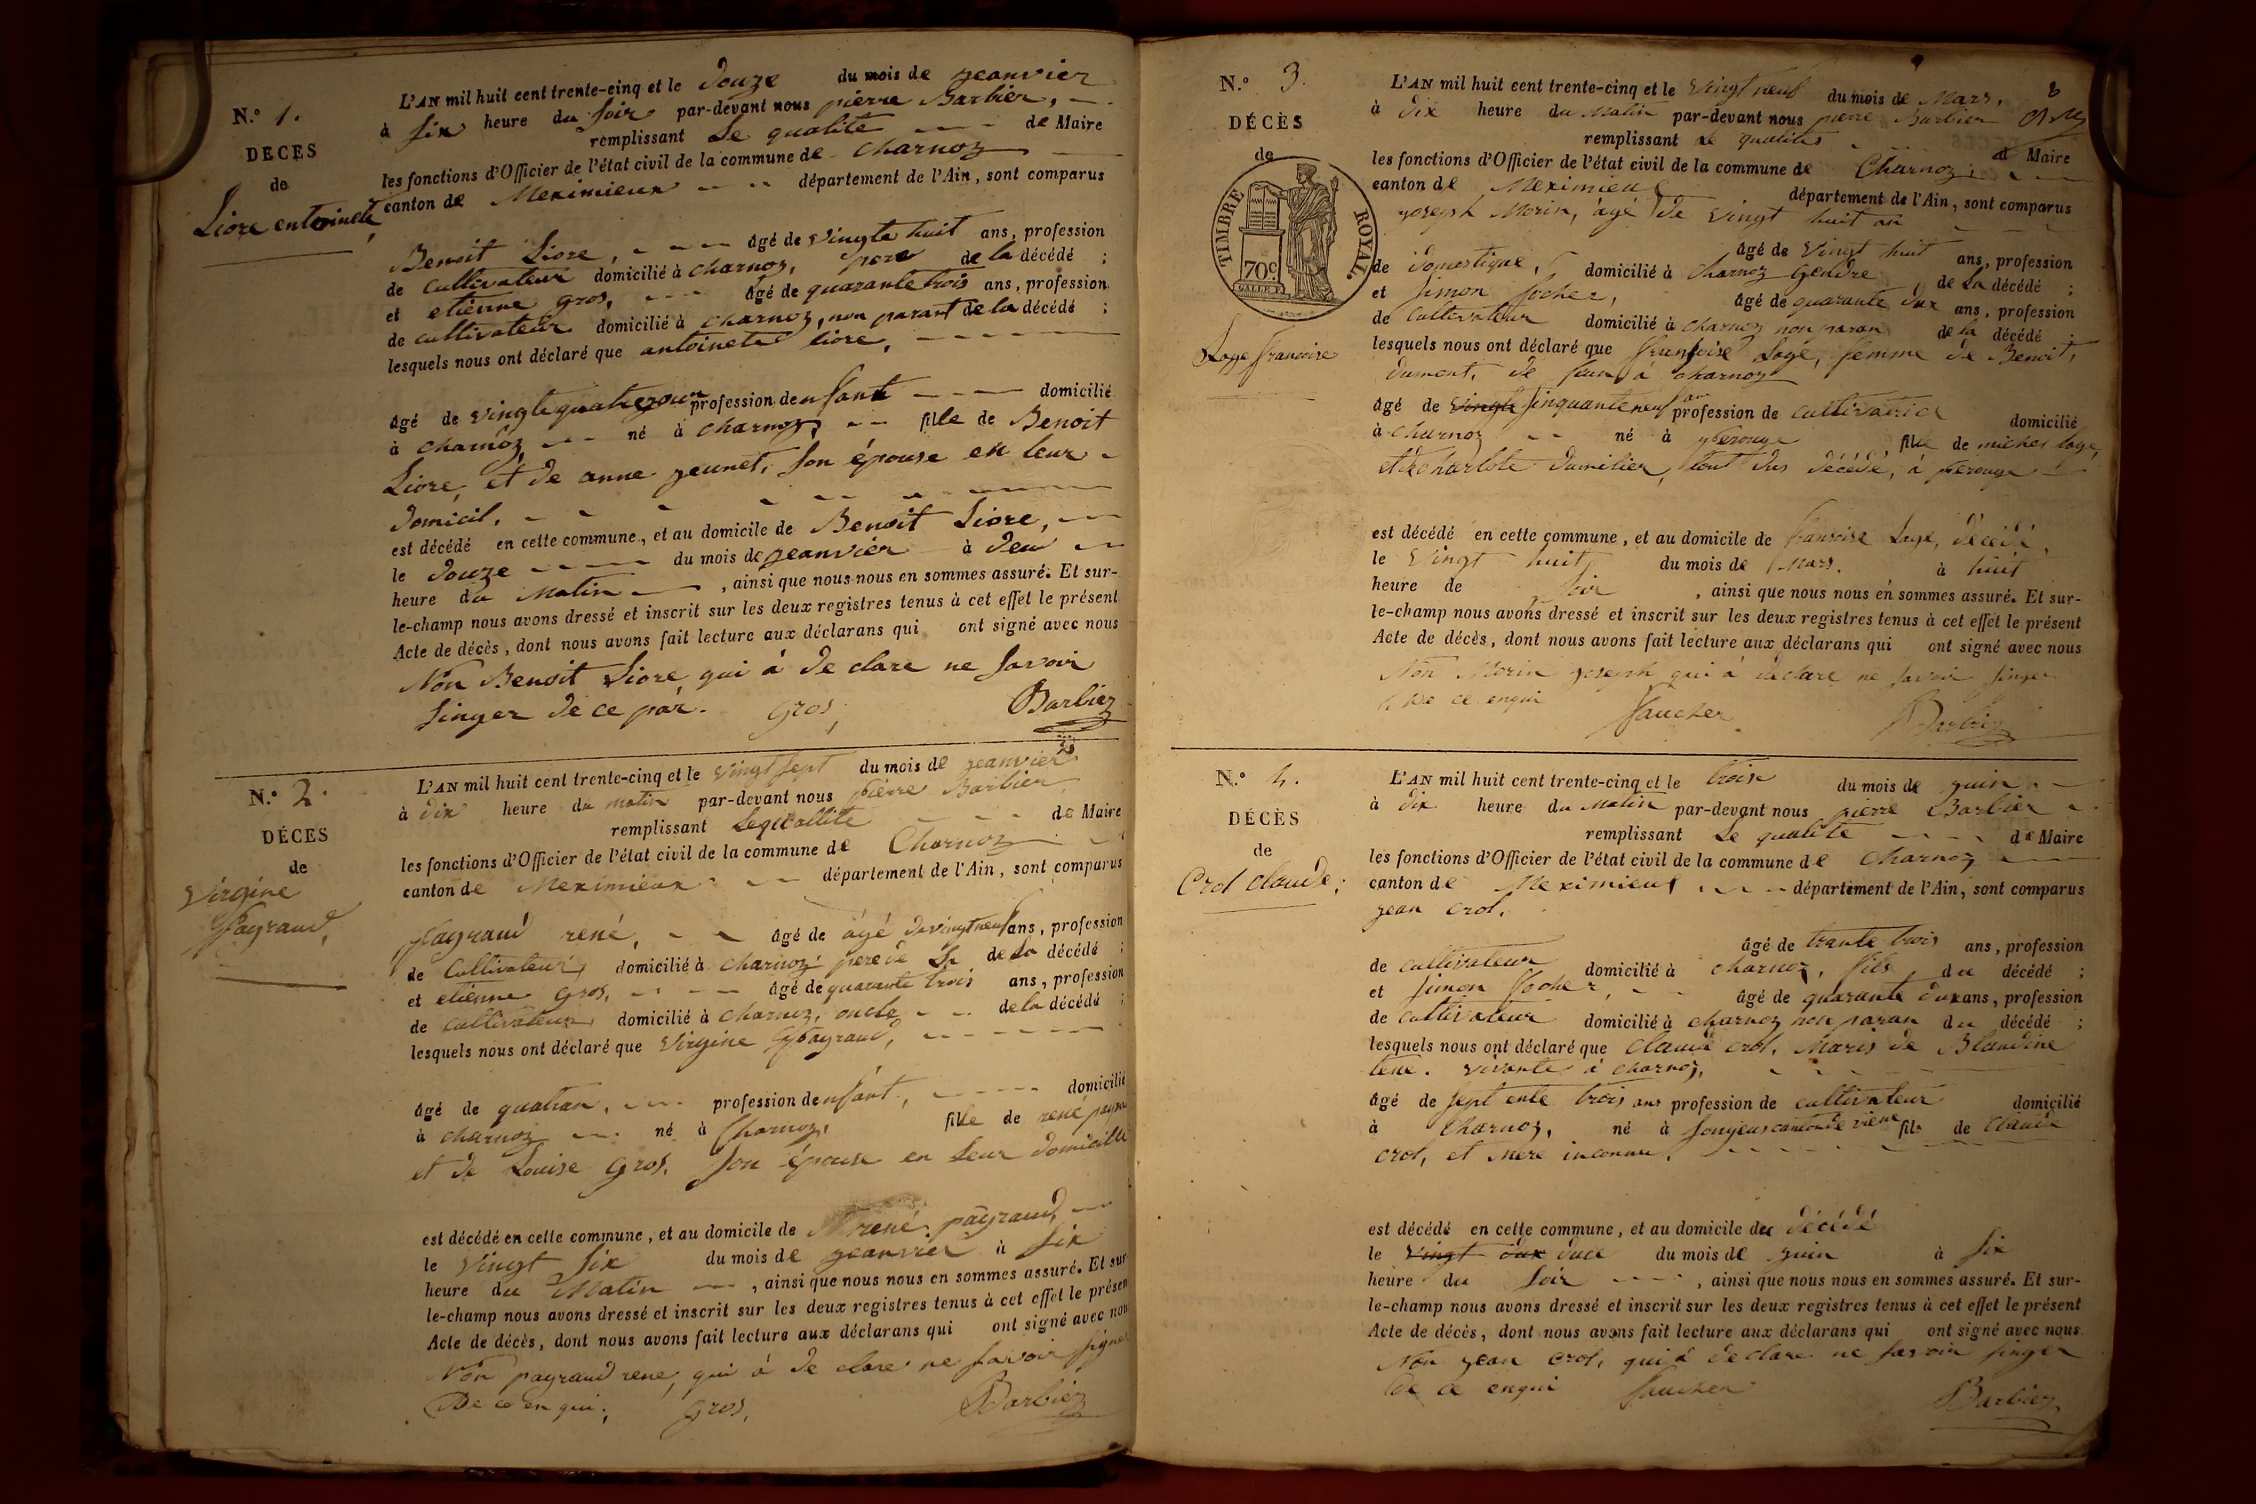 N.° 1.
DÉCES
de
Liore entoinete
L'AN mil huit cent trente-cinq et le douze du mois de jeanvier
à six heure du soir par-devant nous pierre Barbier,
remplissant Le qualite de Maire
les fonctions d'Officier de l'état civil de la commune de Charnoz
canton de Meximieux département de l'Ain, sont comparus
Benoit Liore, âgé de vingte huit ans, profession
de cultivateur domicilié à charnoz, pere de la décédé ;
et etienne gros, âgé de quarante trois ans, profession
de cultivateur domicilié à charnoz, non parant de la décédé ;
lesquels nous ont déclaré que antoinete liore,
âgé de vingte quatre jour profession denfant domicilié
à charnoz, né à charnoz, fille de Benoit
Liore, et de anne jeunet, son épouse en leur
domicil.
est décédé en cette commune, et au domicile de Benoit Liore,
le douze du mois de jeanvier à deu
heure du Matin, ainsi que nous nous en sommes assuré. Et sur-
le-champ nous avons dressé et inscrit sur les deux registres tenus à cet effet le présent
Acte de décès, dont nous avons fait lecture aux déclarans qui ont signé avec nous
Non Benoit Liore, qui á de clare ne savoir
singer de ce par. gros, Barbier
N.° 2.
DÉCES
de
Virgine
Payraud,
L'AN mil huit cent trente-cinq et le vingt sept du mois de jeanvier
à dix heure du matin par-devant nous pierre Barbier
remplissant Lequallite de Maire
les fonctions d'Officier de l'état civil de la commune de Charnoz
canton de Meximieux département de l'Ain, sont comparus
Payraud rené, âgé de âgé de vingt neuf ans, profession
de Cultivateur, domicilié à charnoz, pere de La de La décédé ;
et etienne gros, âgé de quarante trois ans, profession
de cultivateur domicilié à charnoz, oncle de la décédé ;
lesquels nous ont déclaré que Virgine Payraud,
âgé de quatran, profession denfant, domicilié
à charnoz né à Charnoz, fille de rené payra
et de Louise gros, son épouse en Leur domicille
est décédé en cette commune, et au domicile de rené payraud,
le Vingt six du mois de jeanvier à six
heure du Matin, ainsi que nous nous en sommes assuré. Et sur
le-champ nous avons dressé et inscrit sur les deux registres tenus à cet effet le présen
Acte de décès, dont nous avons fait lecture aux déclarans qui ont signé avec nou
Non payraud rene, qui á de clare ne savoir signe
De ce en qui. gros, Barbier
N.° 3.
DÉCÈS
de
TIMBRE ROYAL.
70c
Loge francoise
8
L'AN mil huit cent trente-cinq et le Vingt neuf du mois de Mars,
à dix heure du Matin par-devant nous pierre Barbier
remplissant Le qualites d Maire
les fonctions d'Officier de l'état civil de la commune de Charnoz,
canton de Meximieux département de l'Ain, sont comparus
joseph Morin, âgé de vingt huit an
âgé de Vingt huit ans, profession
de domestique, domicilié à Charnoz Gendre de La décédé ;
et simon focher, âgé de quarante dux ans, profession
de Cultivateur domicilié à charnoz non paran de la décédé ;
lesquels nous ont déclaré que françoise Loge, femme de Benoit,
dumont, de á charnoz
âgé de vingte sinquante neuf an profession de cultivatrice domicilié
à charnoz né à perouge fille de michel loge,
et de charlote dumilier, tout dus décédé, á perouge
est décédé en cette commune, et au domicile de francoise Loge, décédé,
le Vingt huit, du mois de Mars. à huit
heure de soir, ainsi que nous nous en sommes assuré. Et sur-
le-champ nous avons dressé et inscrit sur les deux registres tenus à cet effet le présent
Acte de décès, dont nous avons fait lecture aux déclarans qui ont signé avec nous
Non Morin joseph qui á declare ne savoir singer
de ce enqui faucher Barbier
N.° 4.
DÉCÈS
de
Crol claude,
L'AN mil huit cent trente-cinq et le trois du mois de juin
à dix heure du Matin par-devant nous pierre Barbier
remplissant Le qualite de Maire
les fonctions d'Officier de l'état civil de la commune de Charnoz
canton de Meximieux département de l'Ain, sont comparus
jean crol,
âgé de trante trois ans, profession
de cultivateur domicilié à charnoz, fils du décédé ;
et simon focher, âgé de quarante dux ans, profession
de cultivateur domicilié à charnoz non paran du décédé ;
lesquels nous ont déclaré que claude crol, Maris de Blandine
tene. vivante á charnoz,
âgé de sept ente trois ans profession de cultivateur domicilié
à Charnoz, né à canton de viene fils de Claude
crol, et mere inconnue,
est décédé en cette commune, et au domicile du décédé
le vingt dux duce du mois de juin à six
heure du soir, ainsi que nous nous en sommes assuré. Et sur-
le-champ nous avons dressé et inscrit sur les deux registres tenus à cet effet le présent
Acte de décès, dont nous avons fait lecture aux déclarans qui ont signé avec nous
Non jean crol, qui á declare ne savoir singer
de ce enqui faucher Barbier